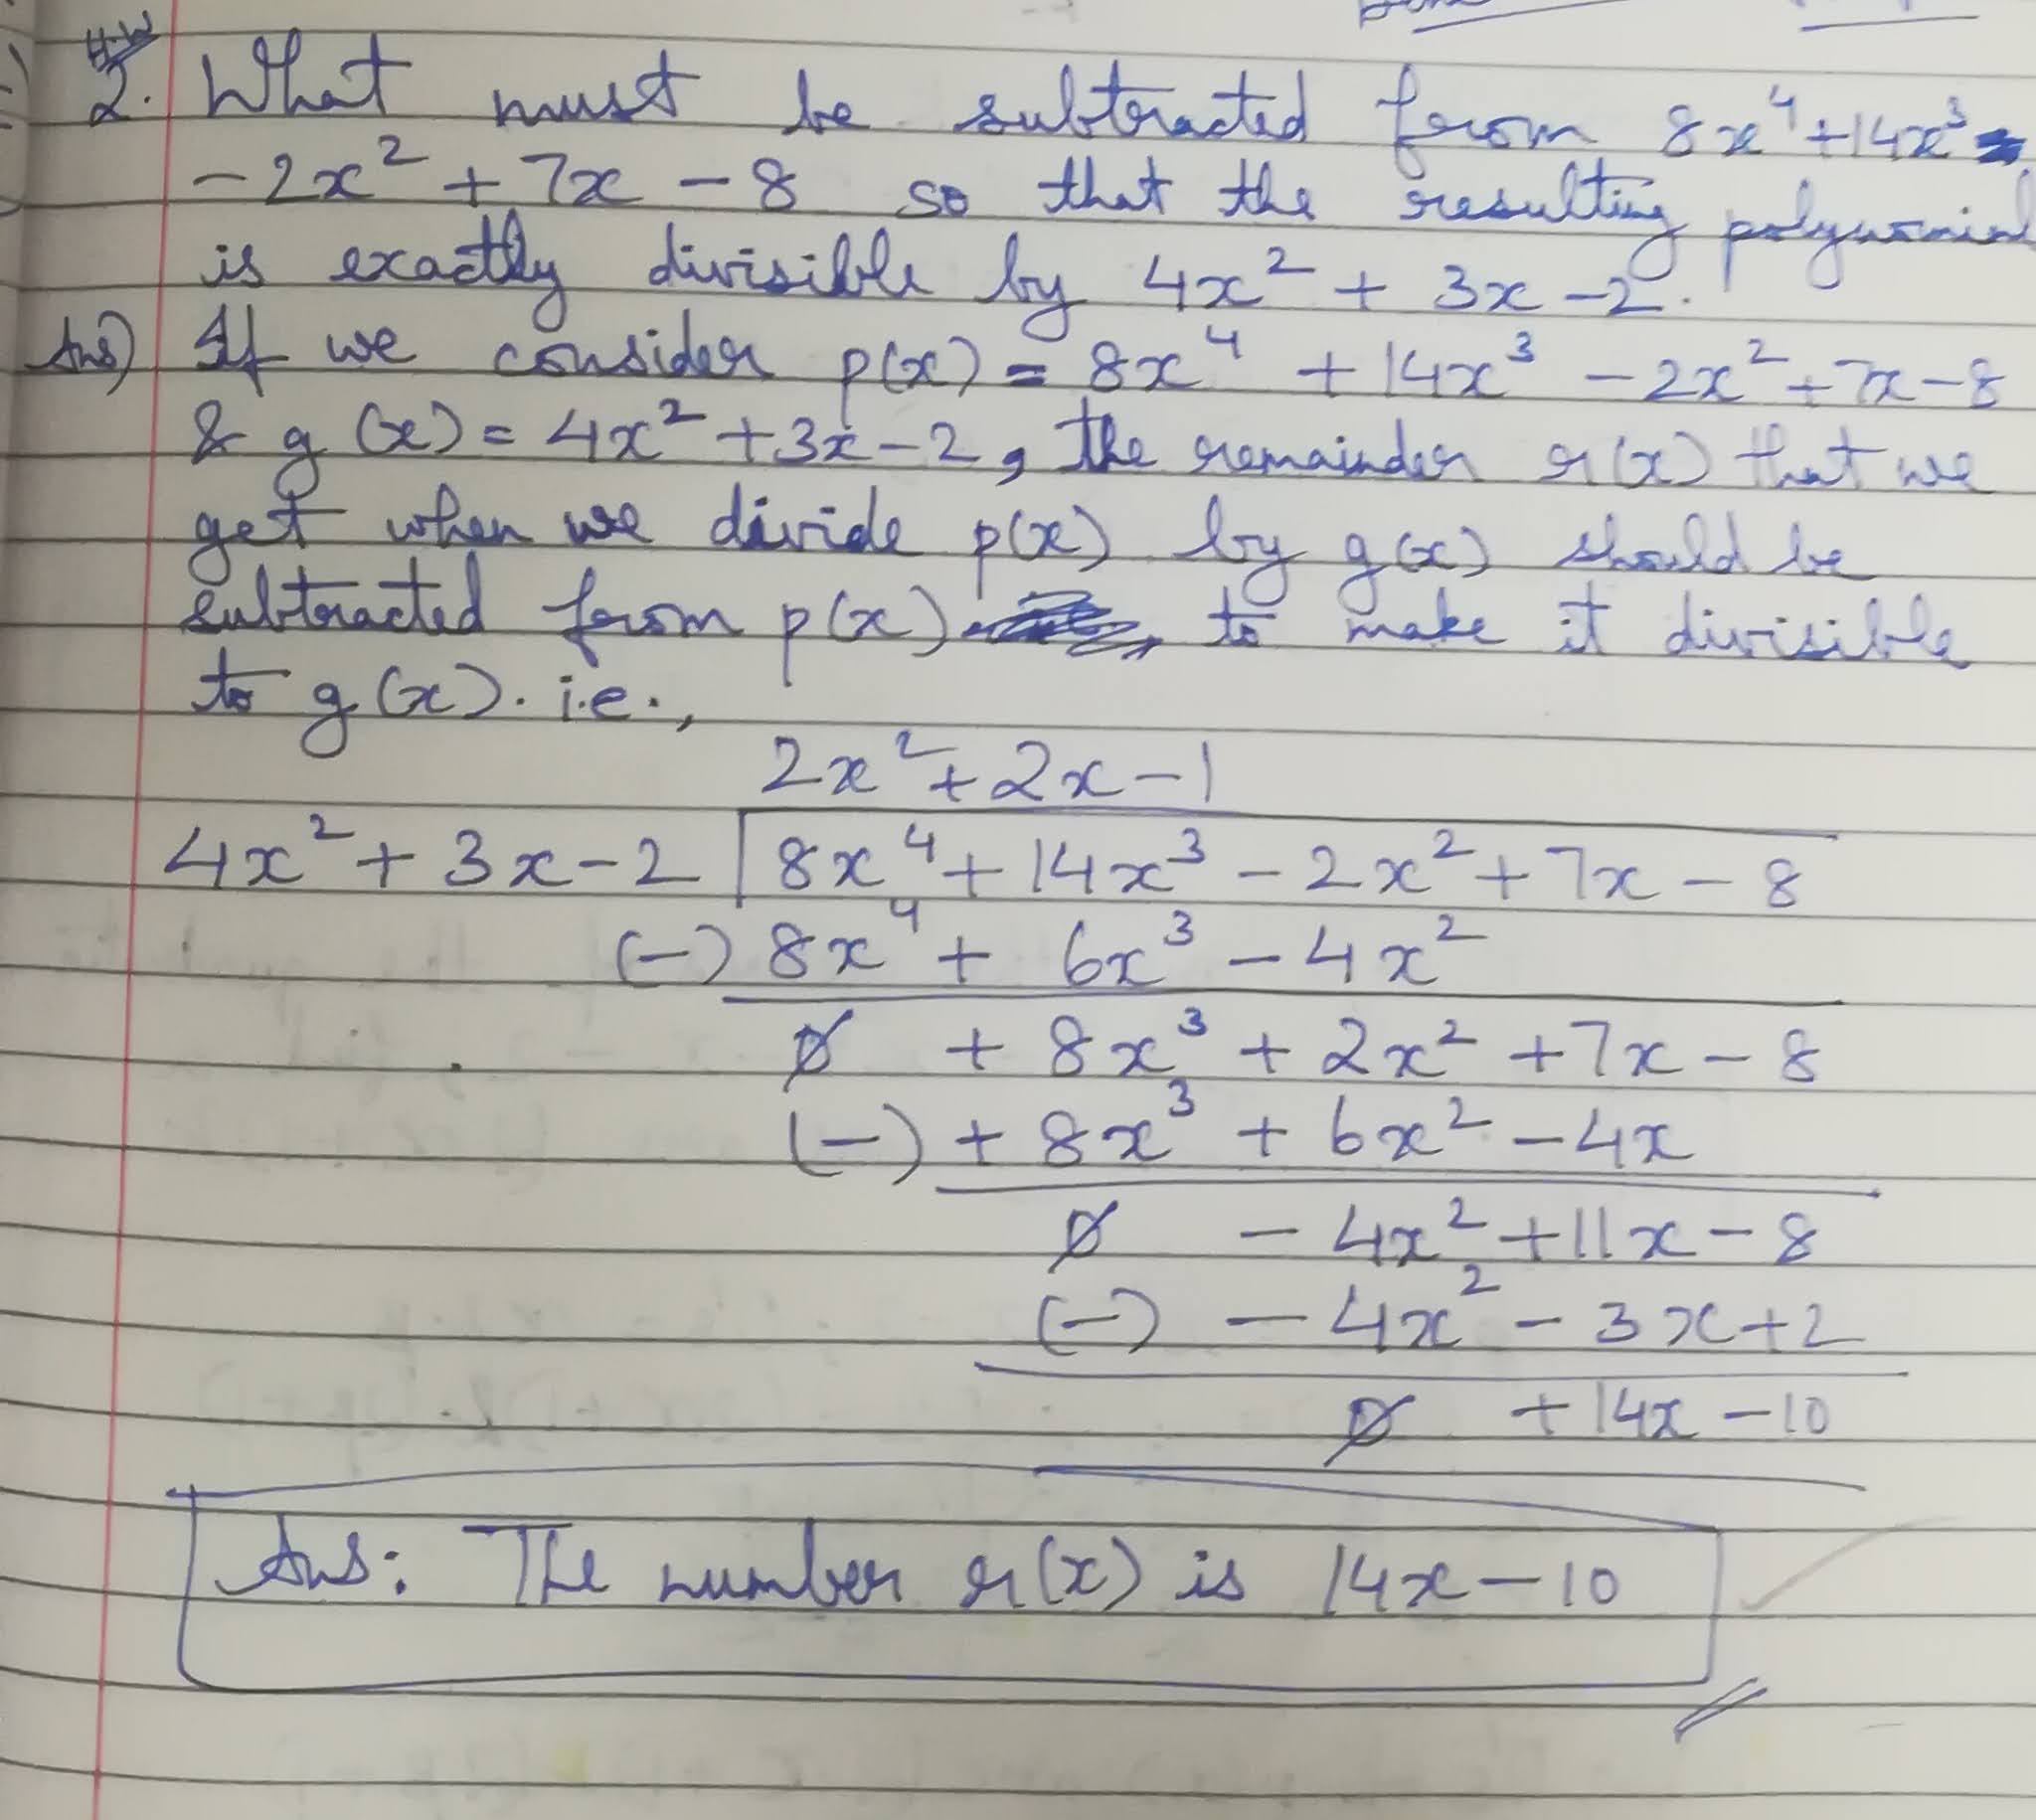 H.W
2. What must be subtracted from 8x⁴+14x³
-2x² + 7x - 8 so that the resulting polynomial
is exactly divisible by 4x² + 3x -2.
Ans) If we consider p(x) = 8x⁴ + 14x³ - 2x² + 7x - 8
& g(x) = 4x² + 3x - 2, the remainder r(x) that we
get when we divide p(x) by g(x) should be
subtracted from p(x) to make it divisible
to g(x). i.e.,
2x² + 2x - 1
4x² + 3x - 2 8x⁴ + 14x³ - 2x² + 7x - 8
(-) 8x⁴ + 6x³ - 4x²
0 + 8x³ + 2x² + 7x - 8
(-) + 8x³ + 6x² - 4x
0 - 4x² + 11x - 8
(-) - 4x² - 3x + 2
0 + 14x - 10
Ans: The number r(x) is 14x - 10